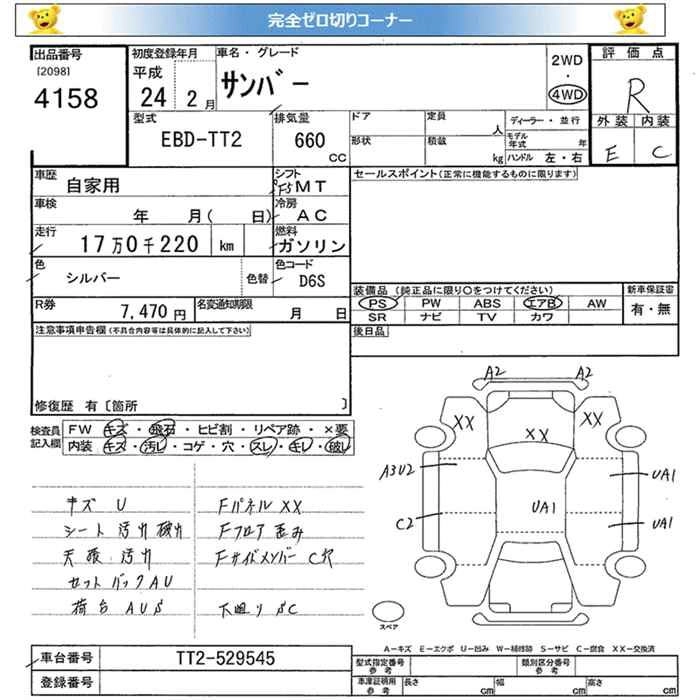 完全ゼロ切りコーナー
出品番号
[2098]
4158
初度登録年月
平成
24 2月
車名・グレード
サンバー
2WD
・
4WD
評価点
R
外装 内装
E C
型式
EBD-TT2
排気量
660
cc
ドア
形状
定員
人
積載
kg
ディーラー・並行
モデル年式 年
ハンドル 左・右
車歴
自家用
シフト
F5MT
車検
年 月( 日)
冷房
AC
走行
17万0千220 km
燃料
ガソリン
色
シルバー
色替
色コード
D6S
R券
7,470円
名変通知期限
月 日
セールスポイント(正常に機能するものに限ります)
装備品 (純正品に限り○をつけてください)
新車保証書
PS PW ABS エアB AW
SR ナビ TV カワ
有・無
後日品
注意事項申告欄(不具合内容等は具体的に記入して下さい)
修復歴 有〔箇所 〕
検査員
記入欄
FW キズ・飛石・ヒビ割・リペア跡・×要
内装 キズ・汚レ・コゲ・穴・スレ・キレ・破レ
キズ U
シート 汚れ 破れ
天張 汚れ
セットバックAU
荷台 AUS
FパネルXX
Fフロア歪み
Fサイドメンバー C穴
下廻り SC
A2 A2
XX XX
XX
A3U2
UA1
UA1
C2
UA1
スペア
A－キズ E－エクボ U－凹み W－補修跡 S－サビ C－腐食 XX－交換済
車台番号 TT2-529545
登録番号
型式指定番号
参考
類別区分番号
参考
車庫証明用
参考
長さ cm
幅 cm
高さ cm